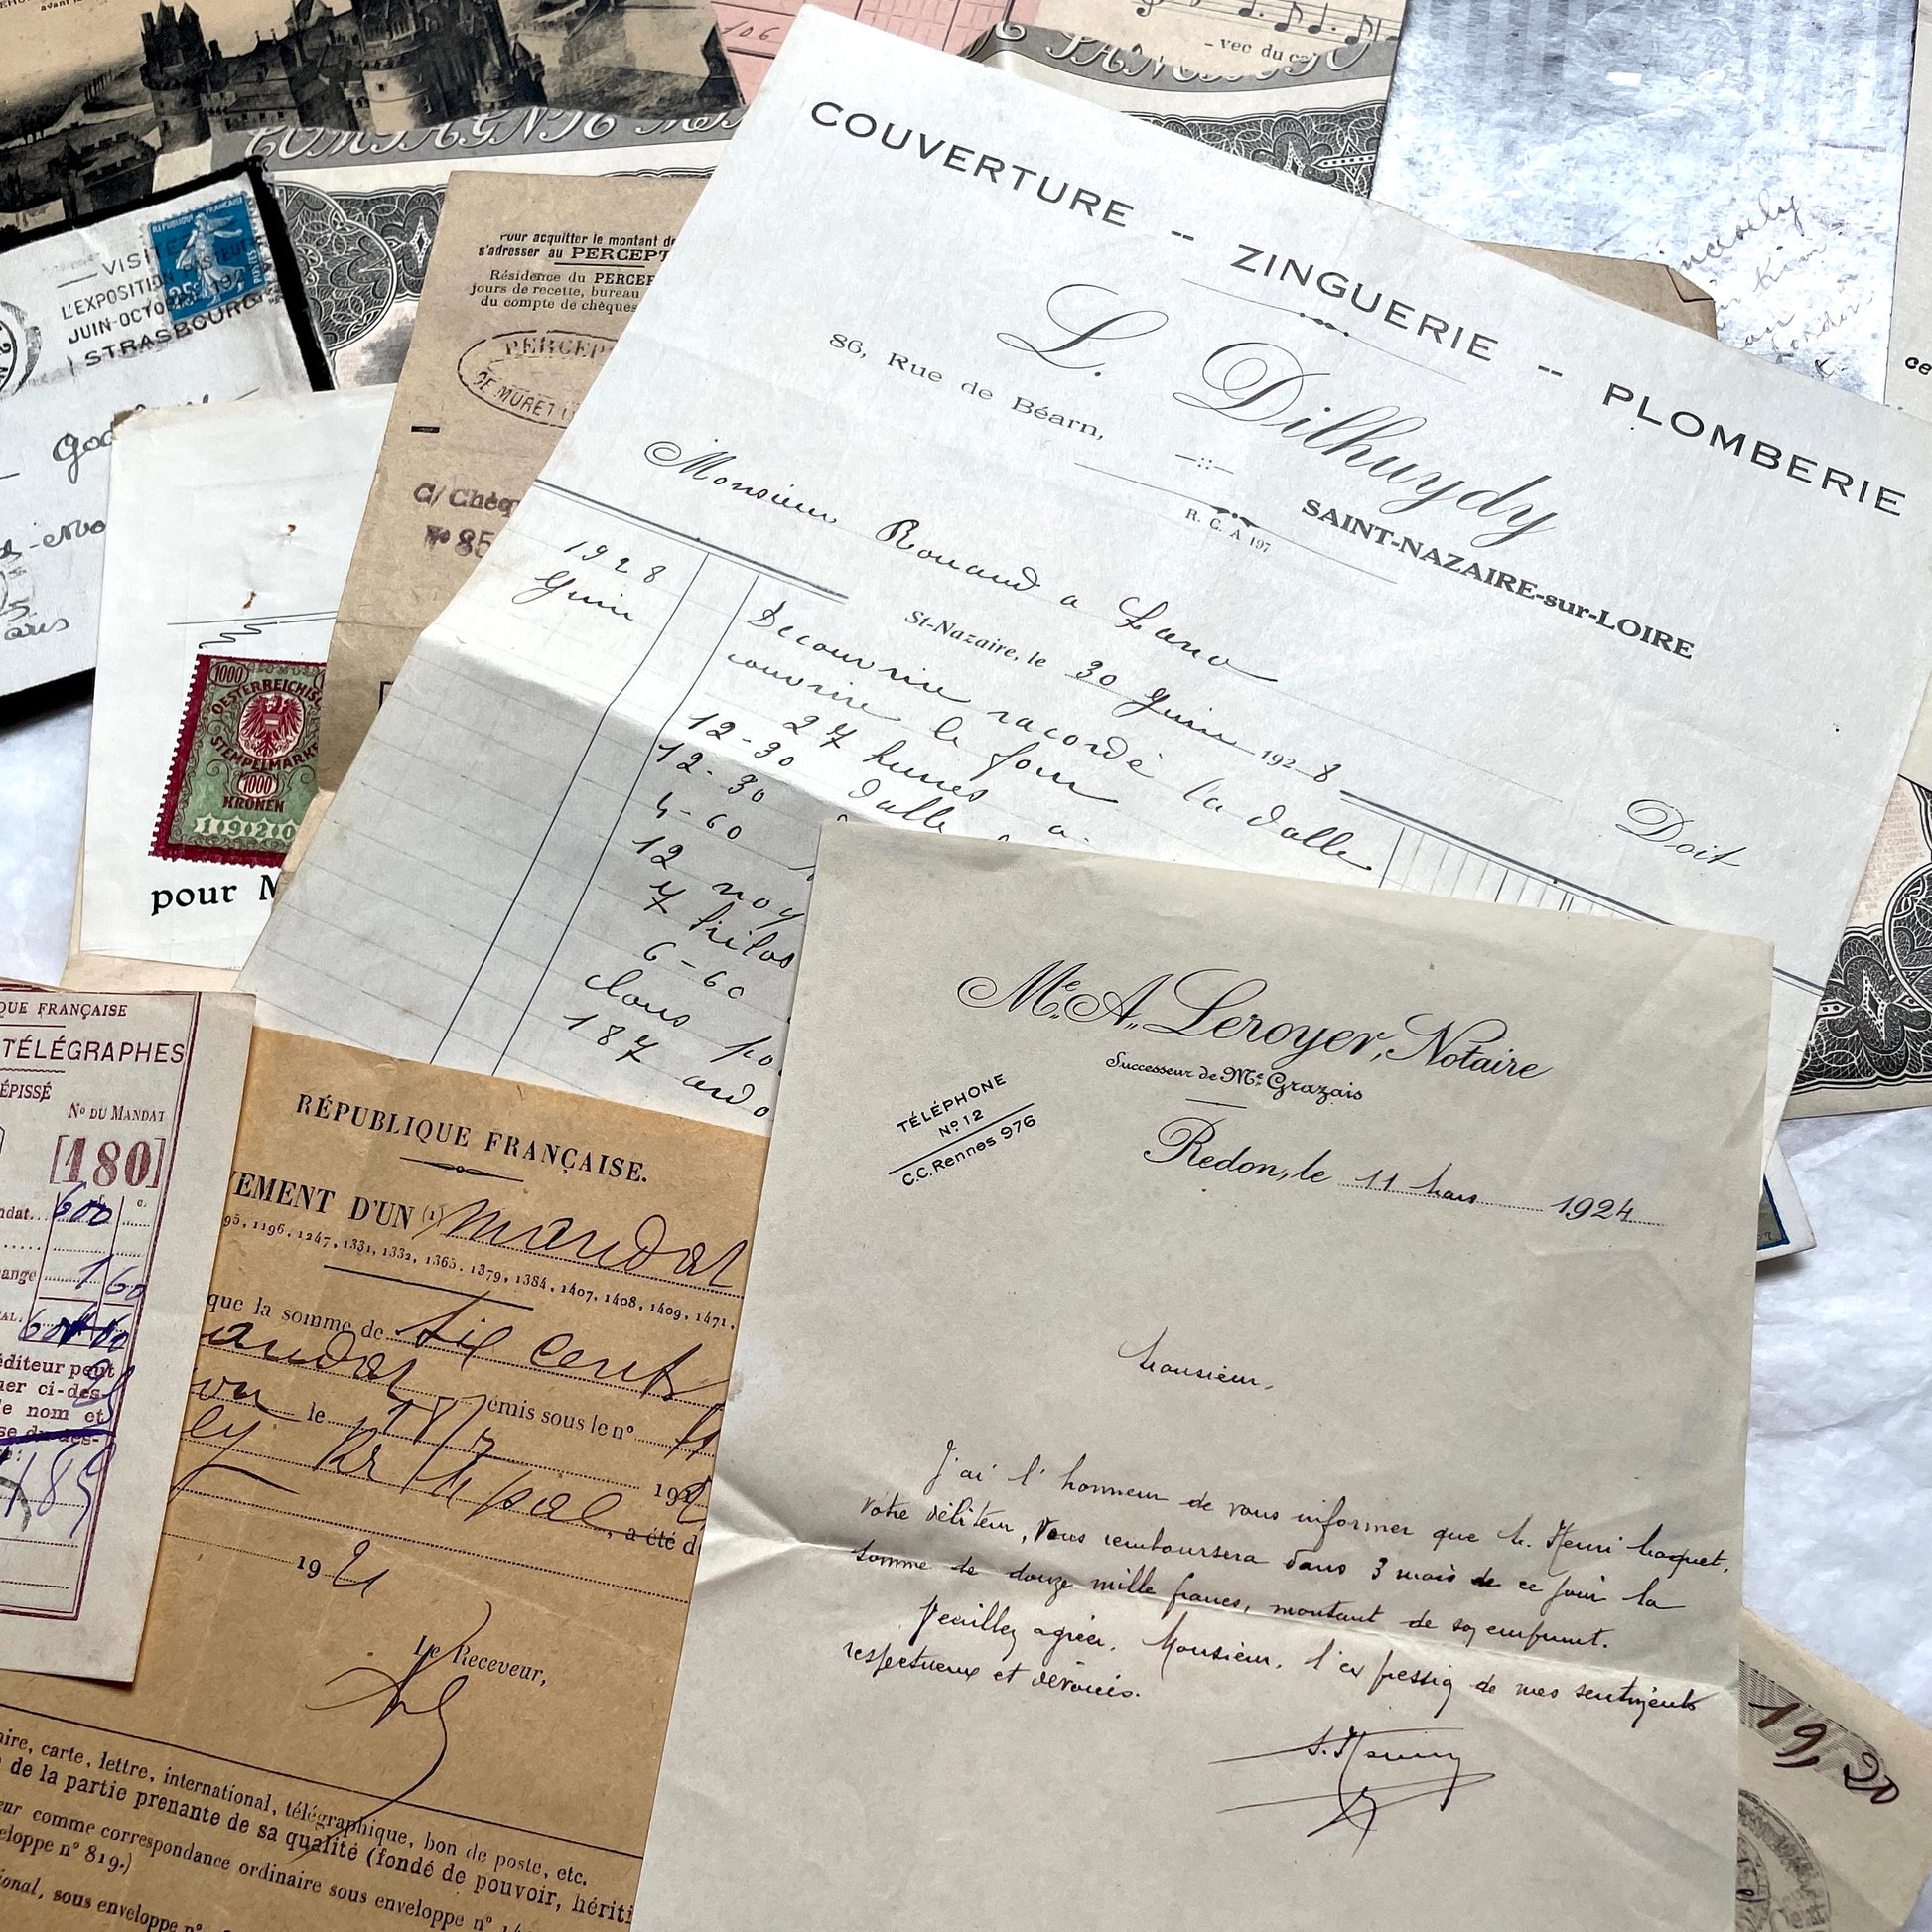 106
- vec du ca
COMPAGNIE
VISITE
L'EXPOSITION PASTEUR
JUIN-OCTOBRE 192
STRASBOURG
REPUBLIQUE FRANÇAISE
POSTES
25c
aris
1000
OESTERREICHISC
STEMPELMARK
1000
KRONEN
1920
pour M
Pour acquitter le montant de
s'adresser au PERCEPT
Résidence du PERCEP
jours de recette, bureau
du compte de chèques
PERCEP
DE MURET
C/ Chèq
N° 85
COUVERTURE -- ZINGUERIE -- PLOMBERIE
L. Dilhuydy
86, Rue de Béarn,
SAINT-NAZAIRE-sur-LOIRE
R. C. A 197
Monsieur Rouaud a
St-Nazaire, le 30 Juin 1928
Doit
1928
Juin
Decouvrir racordé la dalle
couvrire le four
27 heures a
12-30 dalle
12-30
4-60
12 noy
7 kilos
6-60
clous po
187 ardo
Me. A. Leroyer, Notaire
Successeur de Me. Grazais
TÉLÉPHONE
No 12
C.C. Rennes 976
Redon, le 11 Mars 1924
Monsieur,
J'ai l'honneur de vous informer que M. Henri Maquet,
votre débiteur, vous remboursera dans 3 mois de ce jour la
somme de douze mille francs, montant de son emprunt.
Veuillez agréer, Monsieur, l'expression de mes sentiments
respectueux et dévoués.
QUE FRANÇAISE
TÉLÉGRAPHES
ÉPISSÉ
No DU MANDAT
[180]
ndat. 600
c.
ange 1 60
AL.
éditeur peut
uer ci-des-
le nom et
se du des-
RÉPUBLIQUE FRANÇAISE.
YEMENT D'UN (1) Mandat
95, 1196, 1247, 1331, 1332, 1365, 1379, 1384, 1407, 1408, 1409, 1471,
que la somme de six cents
andat émis sous le no
le 18/7 192
, a été d
19 21
Le Receveur,
aire, carte, lettre, international, télégraphique, bon de poste, etc.
de la partie prenante de sa qualité (fondé de pouvoir, hériti
eur comme correspondance ordinaire sous enveloppe n°
eloppe n° 819.)
ional, sous enveloppe n°
19,20